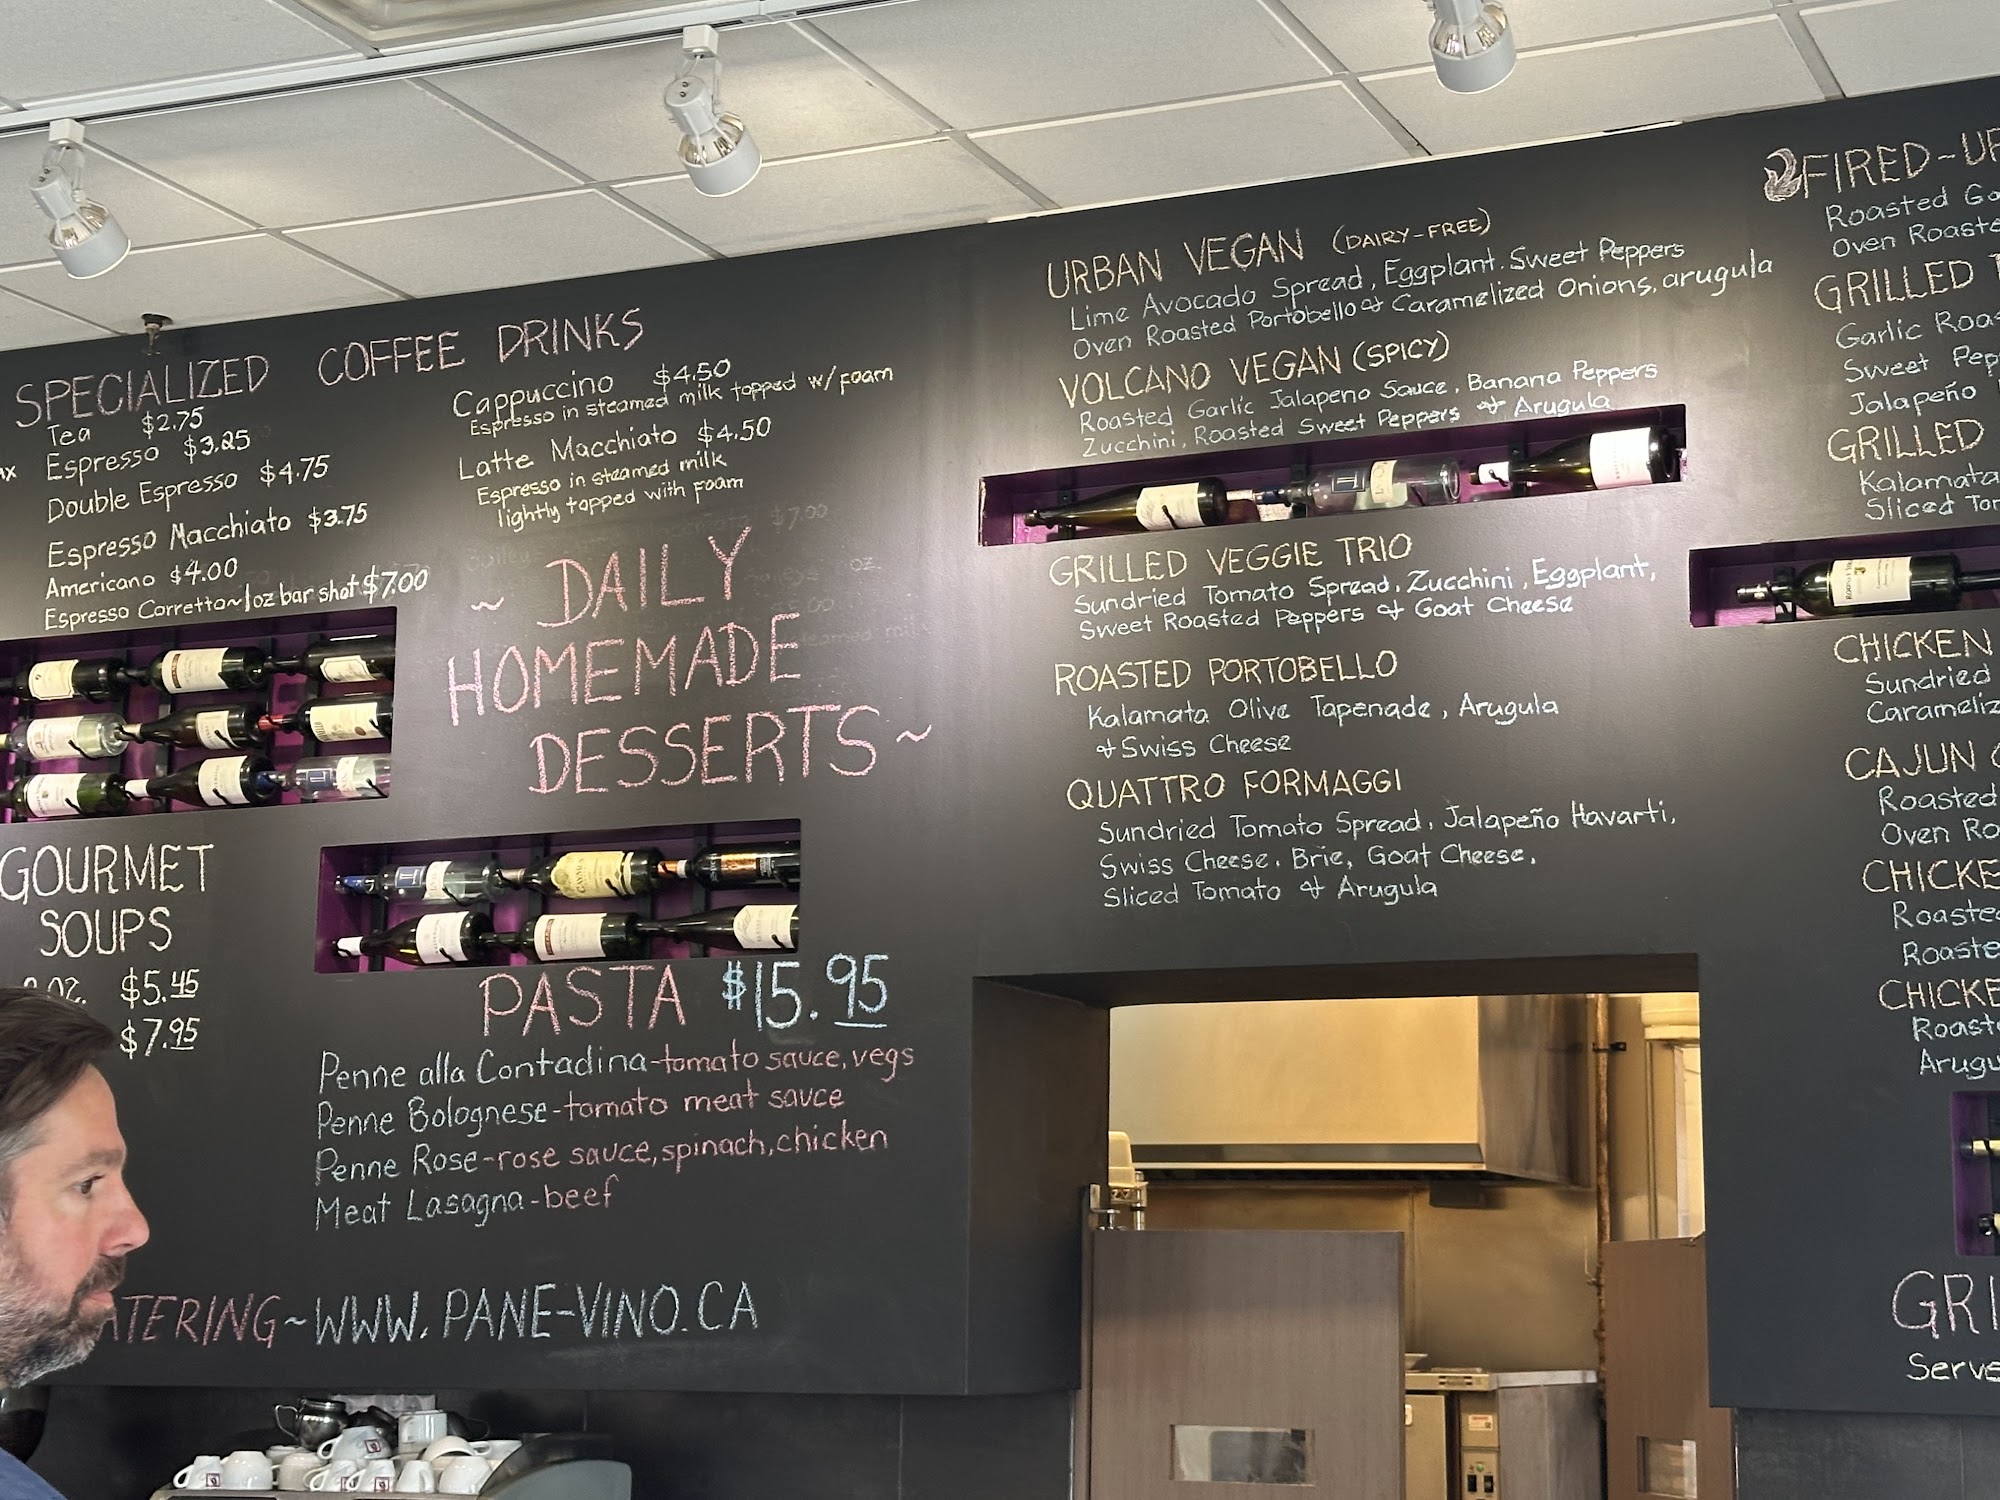 SPECIALIZED COFFEE DRINKS
Tea $2.75
Espresso $3.25
Double Espresso $4.75
Espresso Macchiato $3.75
Americano $4.00
Espresso Corretto~1oz bar shot $7.00
Cappuccino $4.50
Espresso in steamed milk topped w/ foam
Latte Macchiato $4.50
Espresso in steamed milk
lightly topped with foam
~ DAILY
HOMEMADE
DESSERTS ~
GOURMET
SOUPS
oz. $5.45
$7.95
PASTA $15.95
Penne alla Contadina-tomato sauce, vegs
Penne Bolognese-tomato meat sauce
Penne Rose-rose sauce, spinach, chicken
Meat Lasagna-beef
ATERING~WWW.PANE-VINO.CA
URBAN VEGAN (DAIRY-FREE)
Lime Avocado Spread, Eggplant. Sweet Peppers
Oven Roasted Portobello & Caramelized Onions, arugula
VOLCANO VEGAN (SPICY)
Roasted Garlic Jalapeno Sauce, Banana Peppers
Zucchini, Roasted Sweet Peppers & Arugula
GRILLED VEGGIE TRIO
Sundried Tomato Spread, Zucchini, Eggplant,
Sweet Roasted Peppers & Goat Cheese
ROASTED PORTOBELLO
Kalamata Olive Tapenade, Arugula
& Swiss Cheese
QUATTRO FORMAGGI
Sundried Tomato Spread, Jalapeño Havarti,
Swiss Cheese, Brie, Goat Cheese,
Sliced Tomato & Arugula
FIRED-UP
Roasted
Oven
GRILLED
Garlic
Sweet
Jalapeño
GRILLED
Kalamata
Sliced
CHICKEN
Sundried
CAJUN
Roasted
Oven
Serve